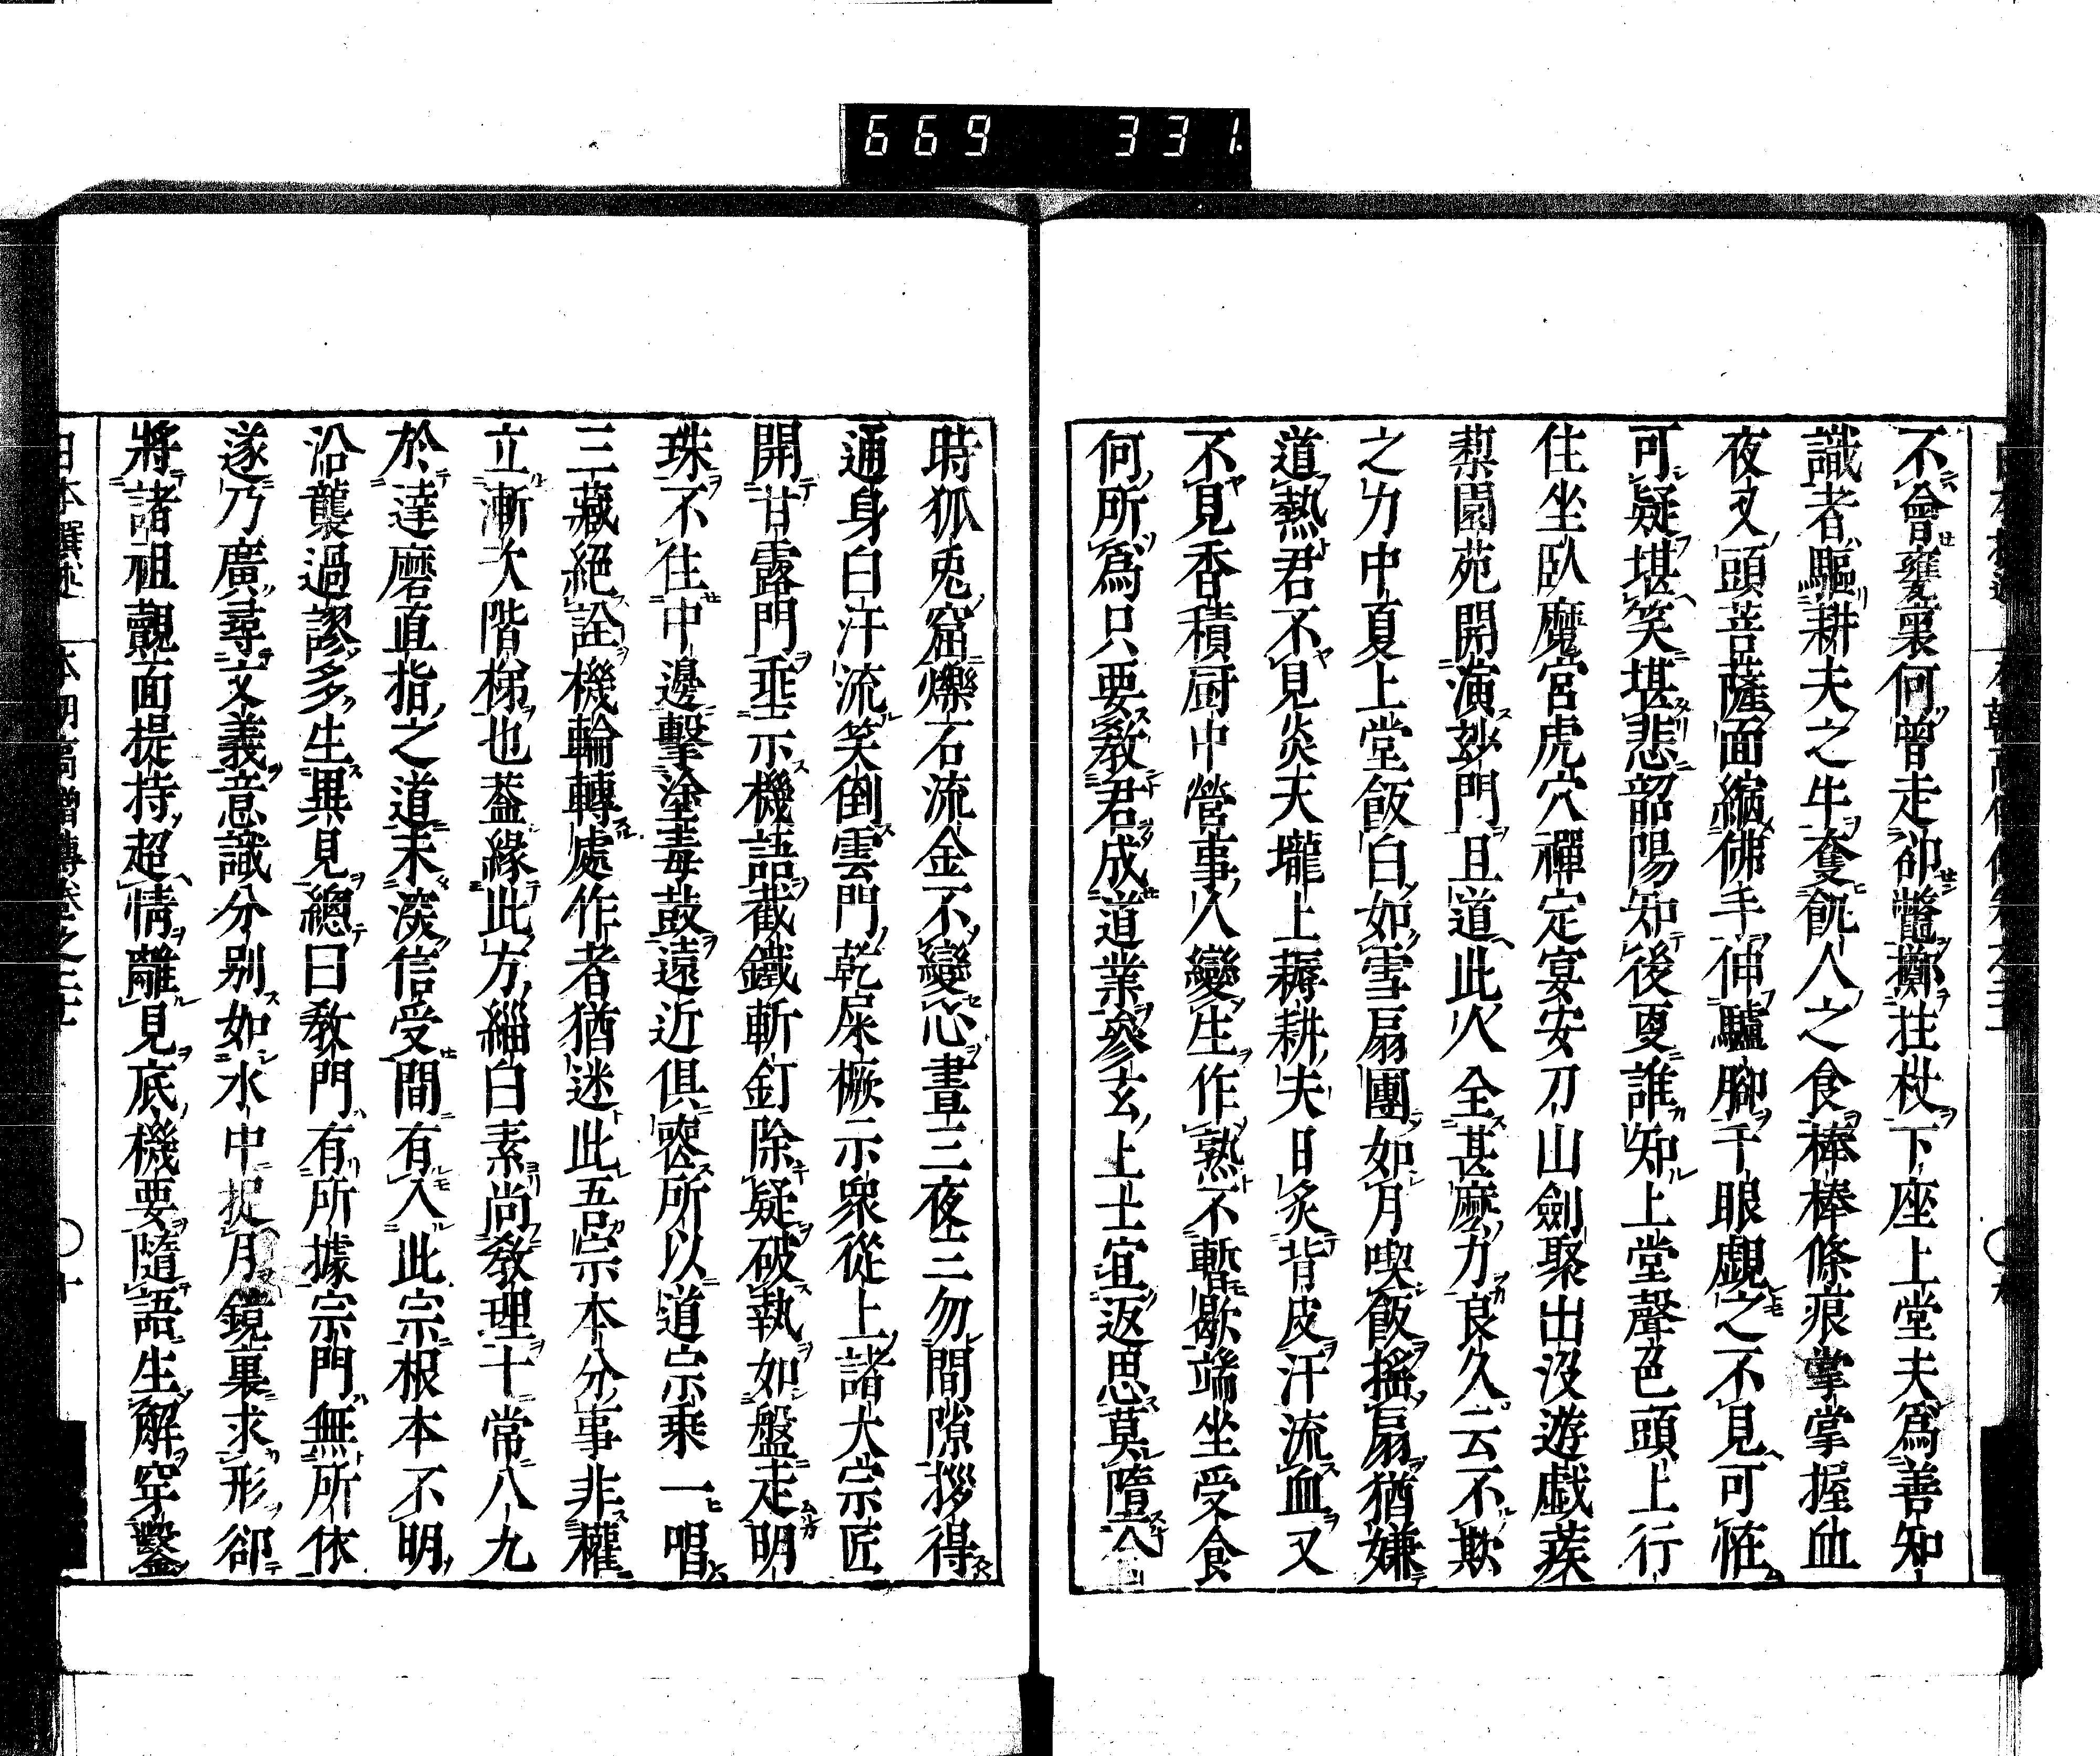 669 331
不會甕裏何曾走卻鼈擲拄杖下座上堂夫爲善知
識者驅耕夫之牛奪飢人之食棒棒條痕掌掌握血
夜叉頭菩薩面縮佛手伸驢腳千眼覷之不見可恠
可疑堪笑堪悲韶陽知後更誰知上堂聲色頭上行
住坐臥魔宮虎穴禪定宴安刀山劍聚出沒遊戯蒺
蔾園苑開演玅門且道此人全甚麽力良久云不欺
之力中夏上堂飯白如雪扇團如月喫飯搖扇猶嫌
道熱君不見炎天壠上耨耕夫日炙背皮汗流血又
不見香積厨中營事人變生作熟不暫歇端坐受食
何所爲只要敎君成道業參玄上士宜返思莫墮
時狐兎窟爍石流金不變心晝三夜三勿間隙拶得
通身白汗流笑倒雲門乾屎橛示衆從上諸大宗匠
開甘露門埀示機語截鐵斬釘除疑破執如盤走明
珠不住中邊擊塗毒鼓遠近俱喪所以道宗乘一唱
三藏絕詮機輪轉處作者猶迷此吾宗本分事非權
立漸次階梯也葢緣此方緇白素尚敎理十常八九
於達磨直指之道未深信受間有入此宗根本不明
沿襲過謬多生異見總曰敎門有所據宗門無所依
遂乃廣尋文義意識分别如水中捉月鏡裏求形卻
將諸祖覿面提持超情離見底機要隨語生解穿鑿
日本撰述 本朝高僧傳卷之三十 十